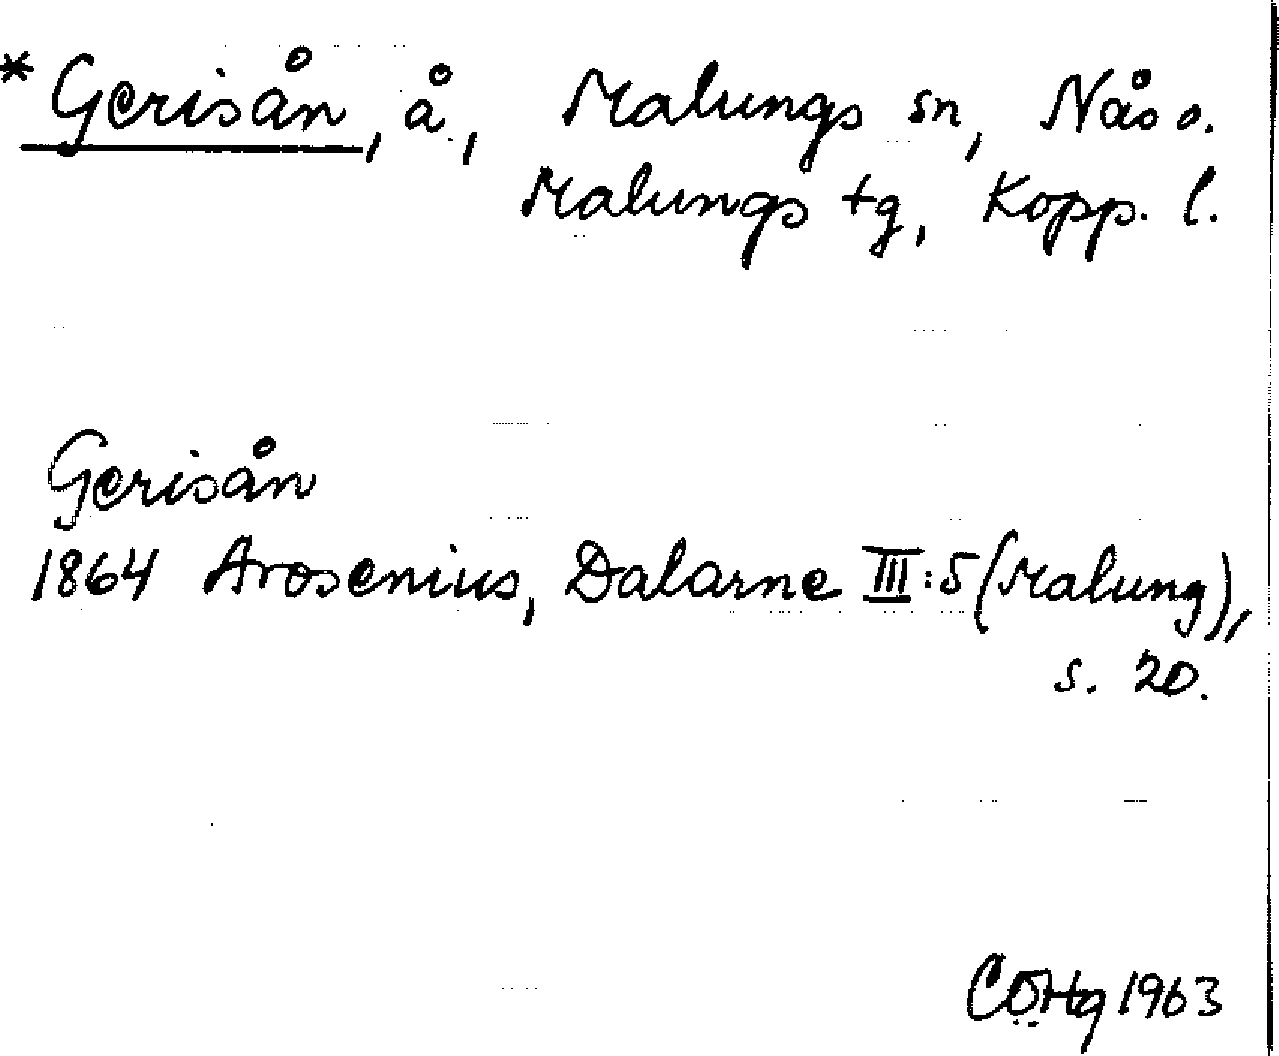 *Gerisån, å, Malungs sn, Nås o.
Malungs tg, Kopp. l.
Gerisån
1864 Arosenius, Dalarne III:5 (Malung),
s. 20.
CÖHg 1963